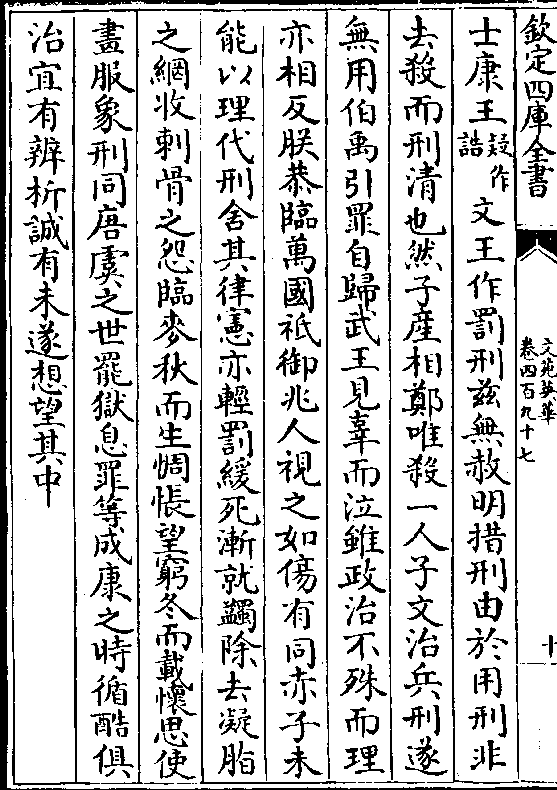 欽定四庫全書
文苑英華
卷四百九十七
十
士康王疑作誥文王作罰刑茲無赦明措刑由於用刑非
去殺而刑清也然子產相鄭唯殺一人子文治兵刑遂
無用伯禹引罪自歸武王見辜而泣雖政治不殊而理
亦相反朕恭臨萬國祇御兆人視之如傷有同赤子未
能以理代刑舍其律憲亦輕罰緩死漸就蠲除去凝脂
之網收刺骨之怨臨麥秋而生惆悵望窮冬而載懷思使
畫服象刑同唐虞之世罷獄息罪等成康之時循酷俱
治宜有辨析誠有未遂想望其中